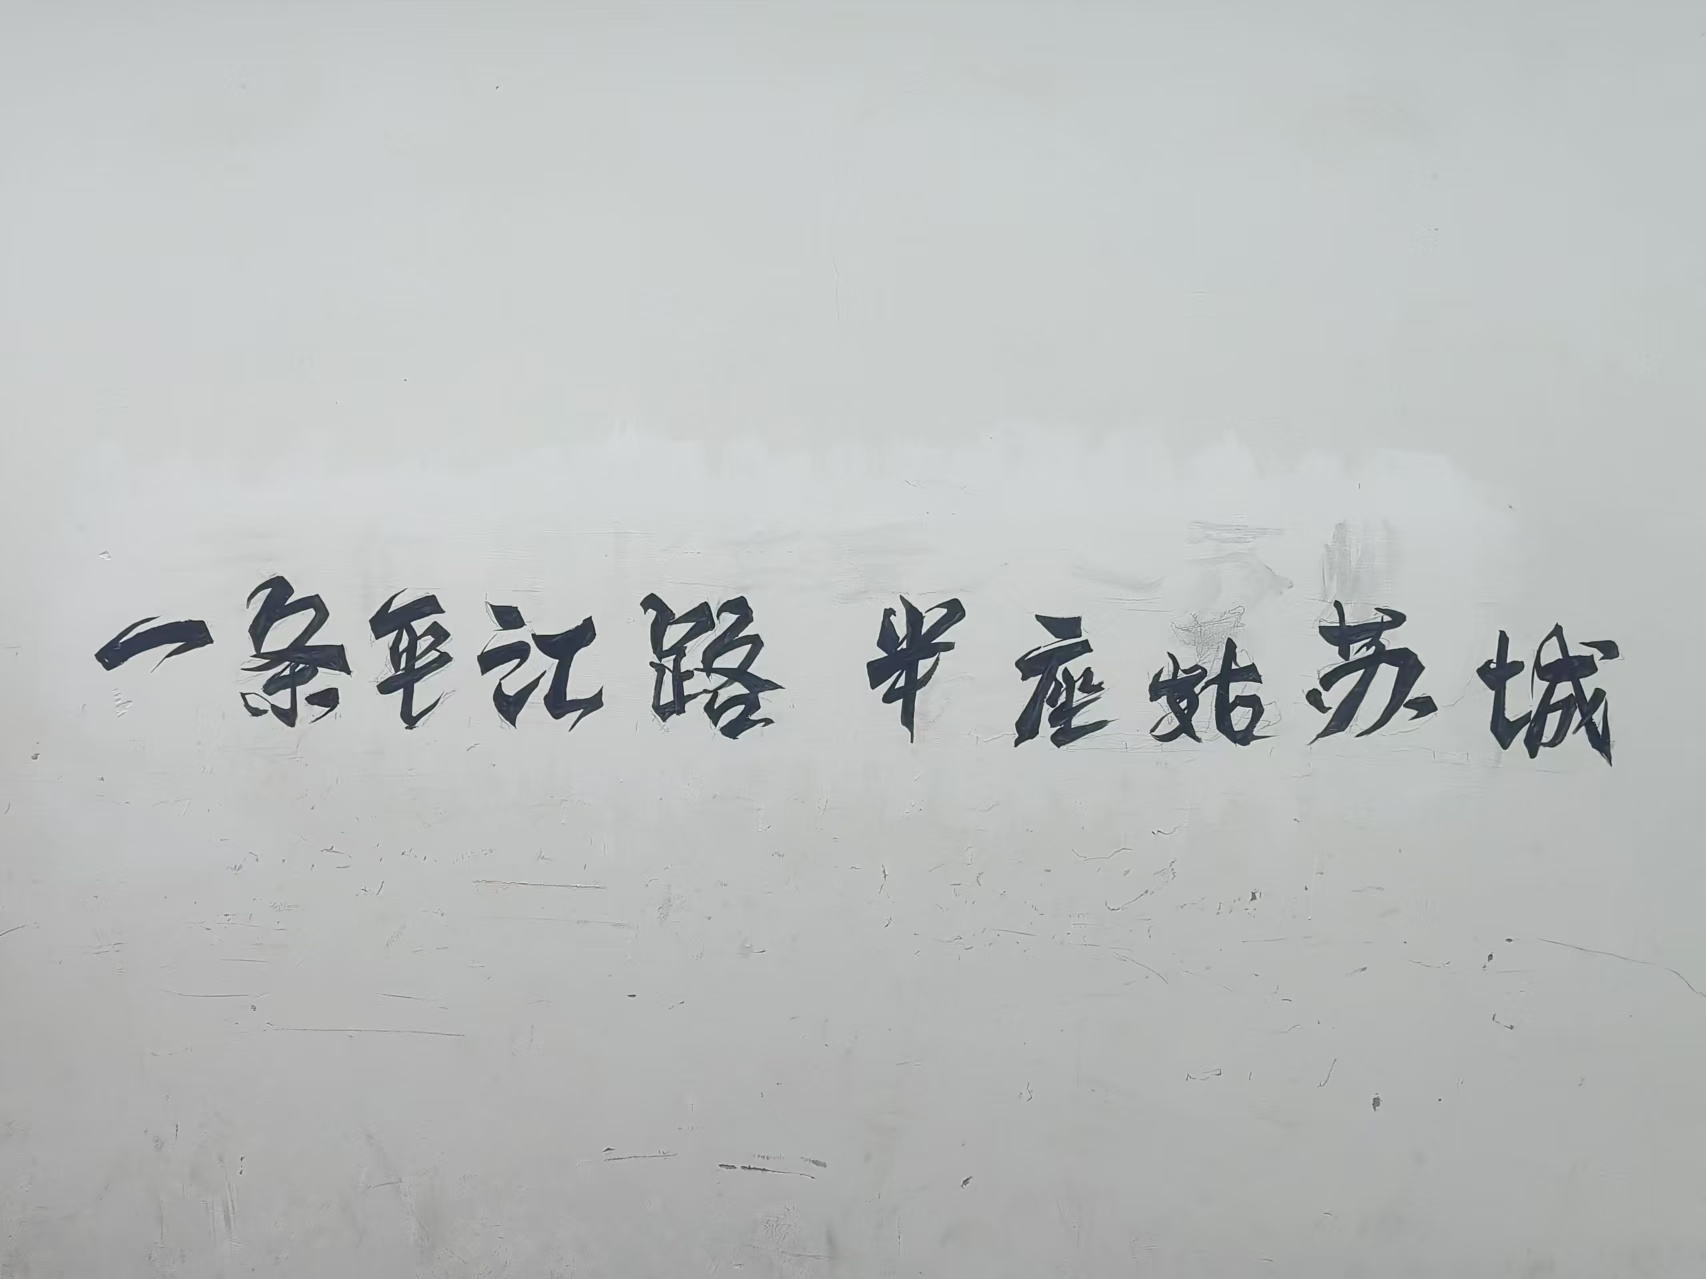 一条平江路 半座姑苏城